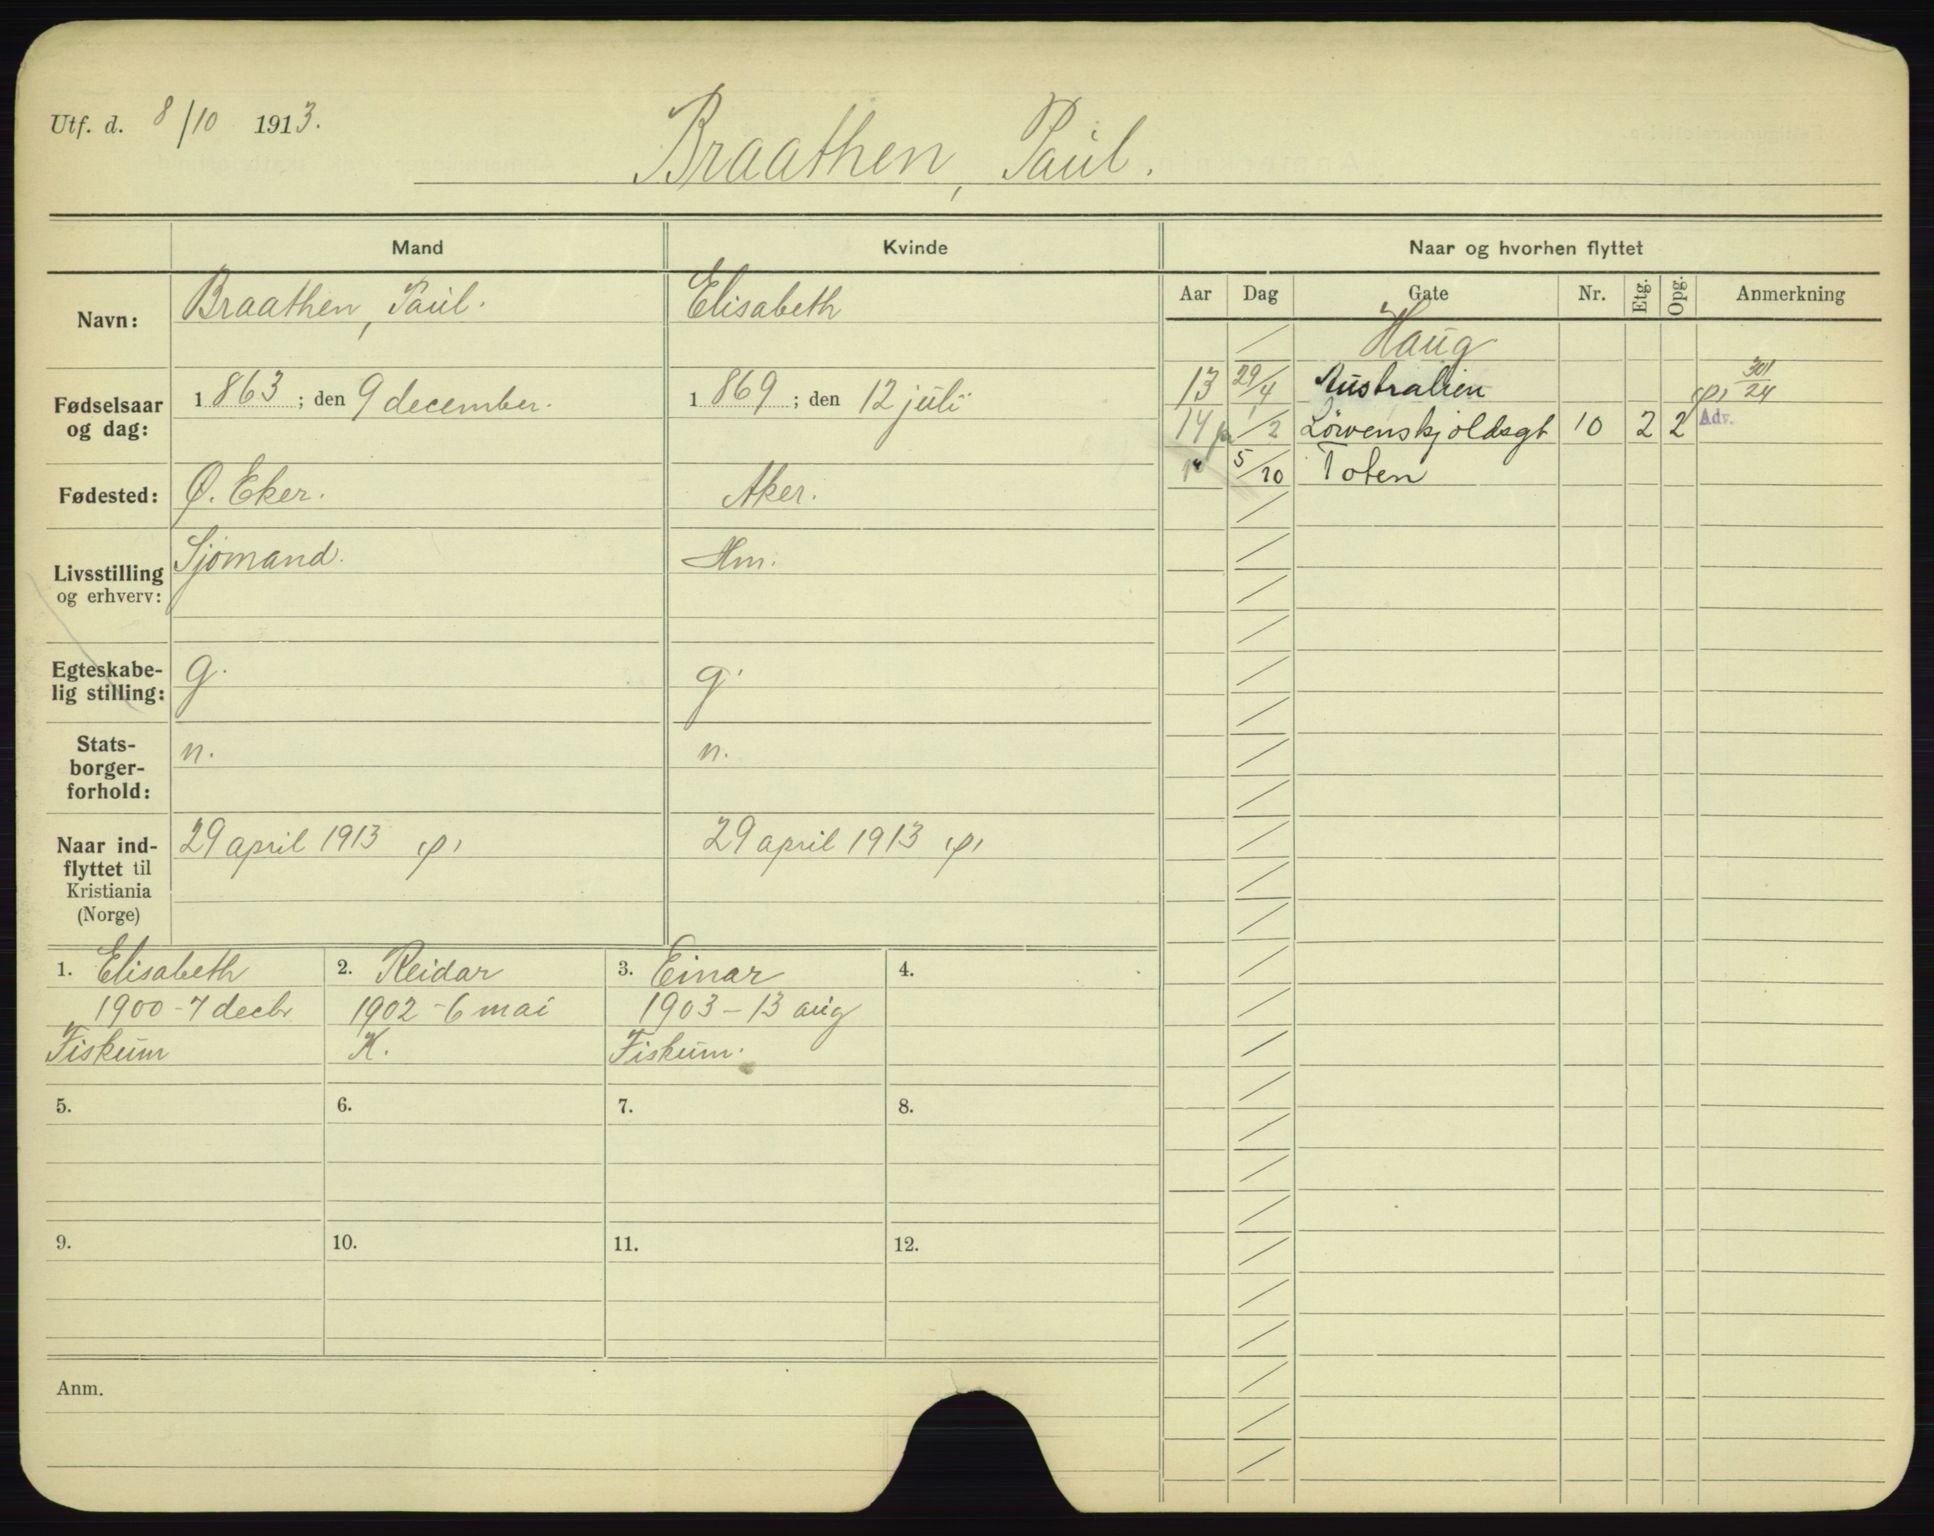 Utf. d. 8/10 1913.
Braathen, Paul.
Mand Kvinde Naar og hvorhen flyttet
Aar Dag Gate Nr. Etg. Opg. Anmerkning
Navn: Braathen, Paul. Elisabeth
Haug
Fødselsaar og dag: 1863; den 9 december. 1869; den 12 juli
13 29/4 Australien 301/24
14 /2 Løvenskjoldsgt 10 2 2 Adv.
5/10 Toten
Fødested: Ø. Eker. Aker.
Livsstilling og erhverv: Sjømand. Hm.
Egteskabe-
lig stilling: g. g.
Stats-
borger-
forhold: n. n.
Naar ind-
flyttet til
Kristiania
(Norge) 29 april 1913 29 april 1913
1. Elisabeth 2. Reidar 3. Einar 4.
1900 - 7 decbr 1902 - 6 mai 1903 - 13 aug
Fiskum K. Fiskum.
5. 6. 7. 8.
9. 10. 11. 12.
Anm.